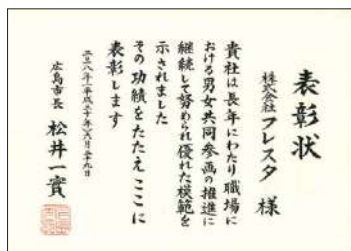 表彰状
株式会社フレスタ 様
貴社は長年にわたり職場に
おける男女共同参画の推進に
継続して努められ優れた模範を
示されました
その功績をたたえここに
表彰します
二〇一八年(平成三十年)六月二十九日
広島市長 松井一實